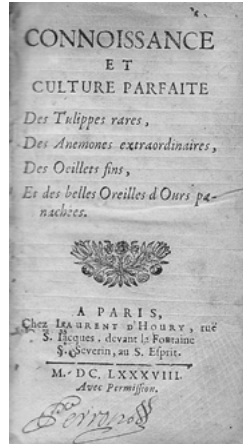 CONNOISSANCE
ET
CULTURE PARFAITE
Des Tulippes rares,
Des Anemones extraordinaires,
Des Oeillets fins,
Et des belles Oreilles d'Ours pa-
nachées.
A PARIS,
Chez LAURENT D'HOURY, ruë
S. Jacques, devant la Fontaine
S. Severin, au S. Esprit.
M. DC. LXXXVIII.
Avec Permission.